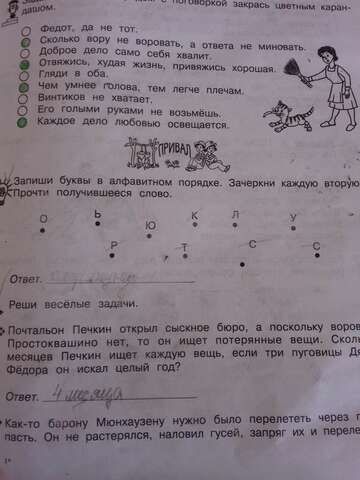 с поговоркой закрась цветным каран-
дашом.
Федот, да не тот.
Сколько вору не воровать, а ответа не миновать.
Доброе дело само себя хвалит.
Отвяжись, худая жизнь, привяжись хорошая.
Гляди в оба.
Чем умнее голова, тем легче плечам.
Винтиков не хватает.
Его голыми руками не возьмёшь.
Каждое дело любовью освещается.
ПРИВАЛ
Запиши буквы в алфавитном порядке. Зачеркни каждую вторую
Прочти получившееся слово.
О Ь Ю К Л У
Р Т С С
Ответ.
Реши весёлые задачи.
Почтальон Печкин открыл сыскное бюро, а поскольку воров
Простоквашино нет, то он ищет потерянные вещи. Скол
месяцев Печкин ищет каждую вещь, если три пуговицы Дя
Фёдора он искал целый год?
Ответ. 4 месяца
Как-то барону Мюнхаузену нужно было перелететь через п
пасть. Он не растерялся, наловил гусей, запряг их и переле